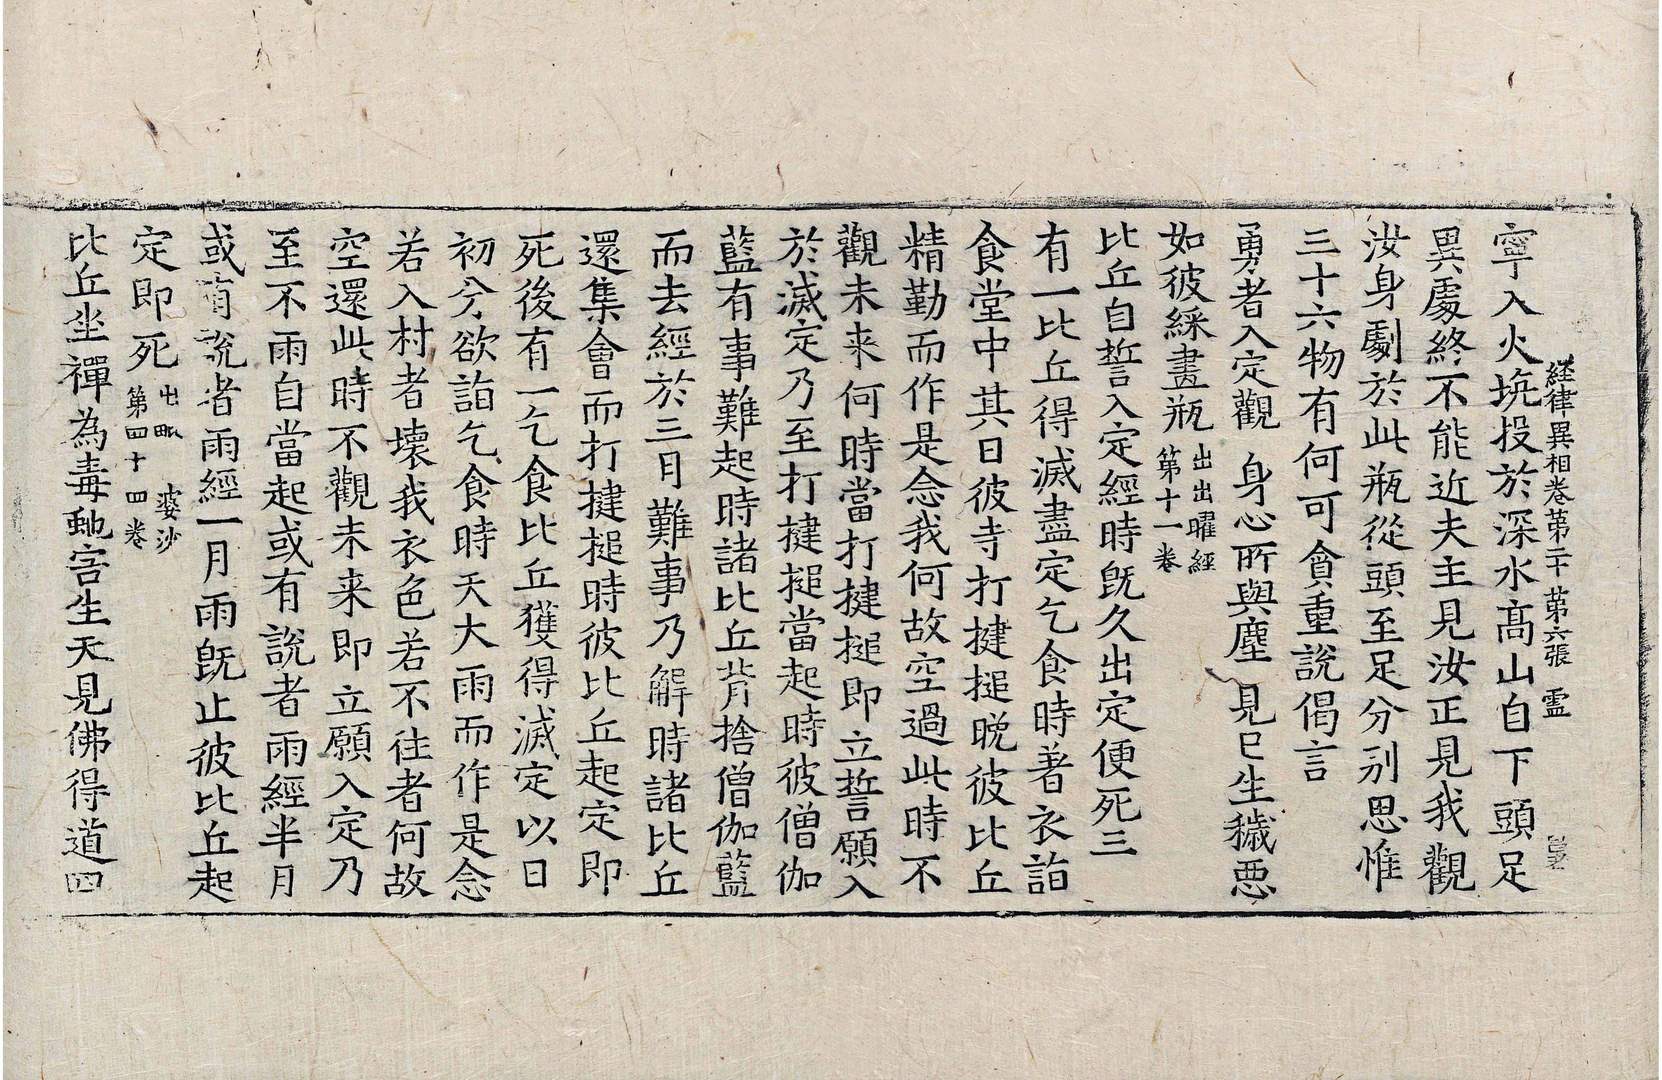 経律異相卷第二十 第六張 霊
寧入火坑投於深水高山自下頭足
異處終不能近夫主見汝正見我觀
汝身劇於此瓶從頭至足分別思惟
三十六物有何可貪重說偈言
勇者入定觀 身心所與塵 見已生穢惡
如彼綵畫瓶 出出曜經第十一卷
比丘自誓入定經時既久出定便死三
有一比丘得滅盡定乞食時著衣詣
食堂中其日彼寺打揵搥晚彼比丘
精勤而作是念我何故空過此時不
觀未来何時當打揵搥即立誓願入
於滅定乃至打揵搥當起時彼僧伽
藍有事難起時諸比丘背捨僧伽藍
而去經於三月難事乃解時諸比丘
還集會而打揵搥時彼比丘起定即
死後有一乞食比丘獲得滅定以日
初分欲詣乞食時天大雨而作是念
若入村者壞我衣色若不往者何故
空還此時不觀未来即立願入定乃
至不雨自當起或有說者雨經半月
或有說者雨經一月雨既止彼比丘起
定即死 出毗婆沙第四十四卷
比丘坐禪為毒虵害生天見佛得道四